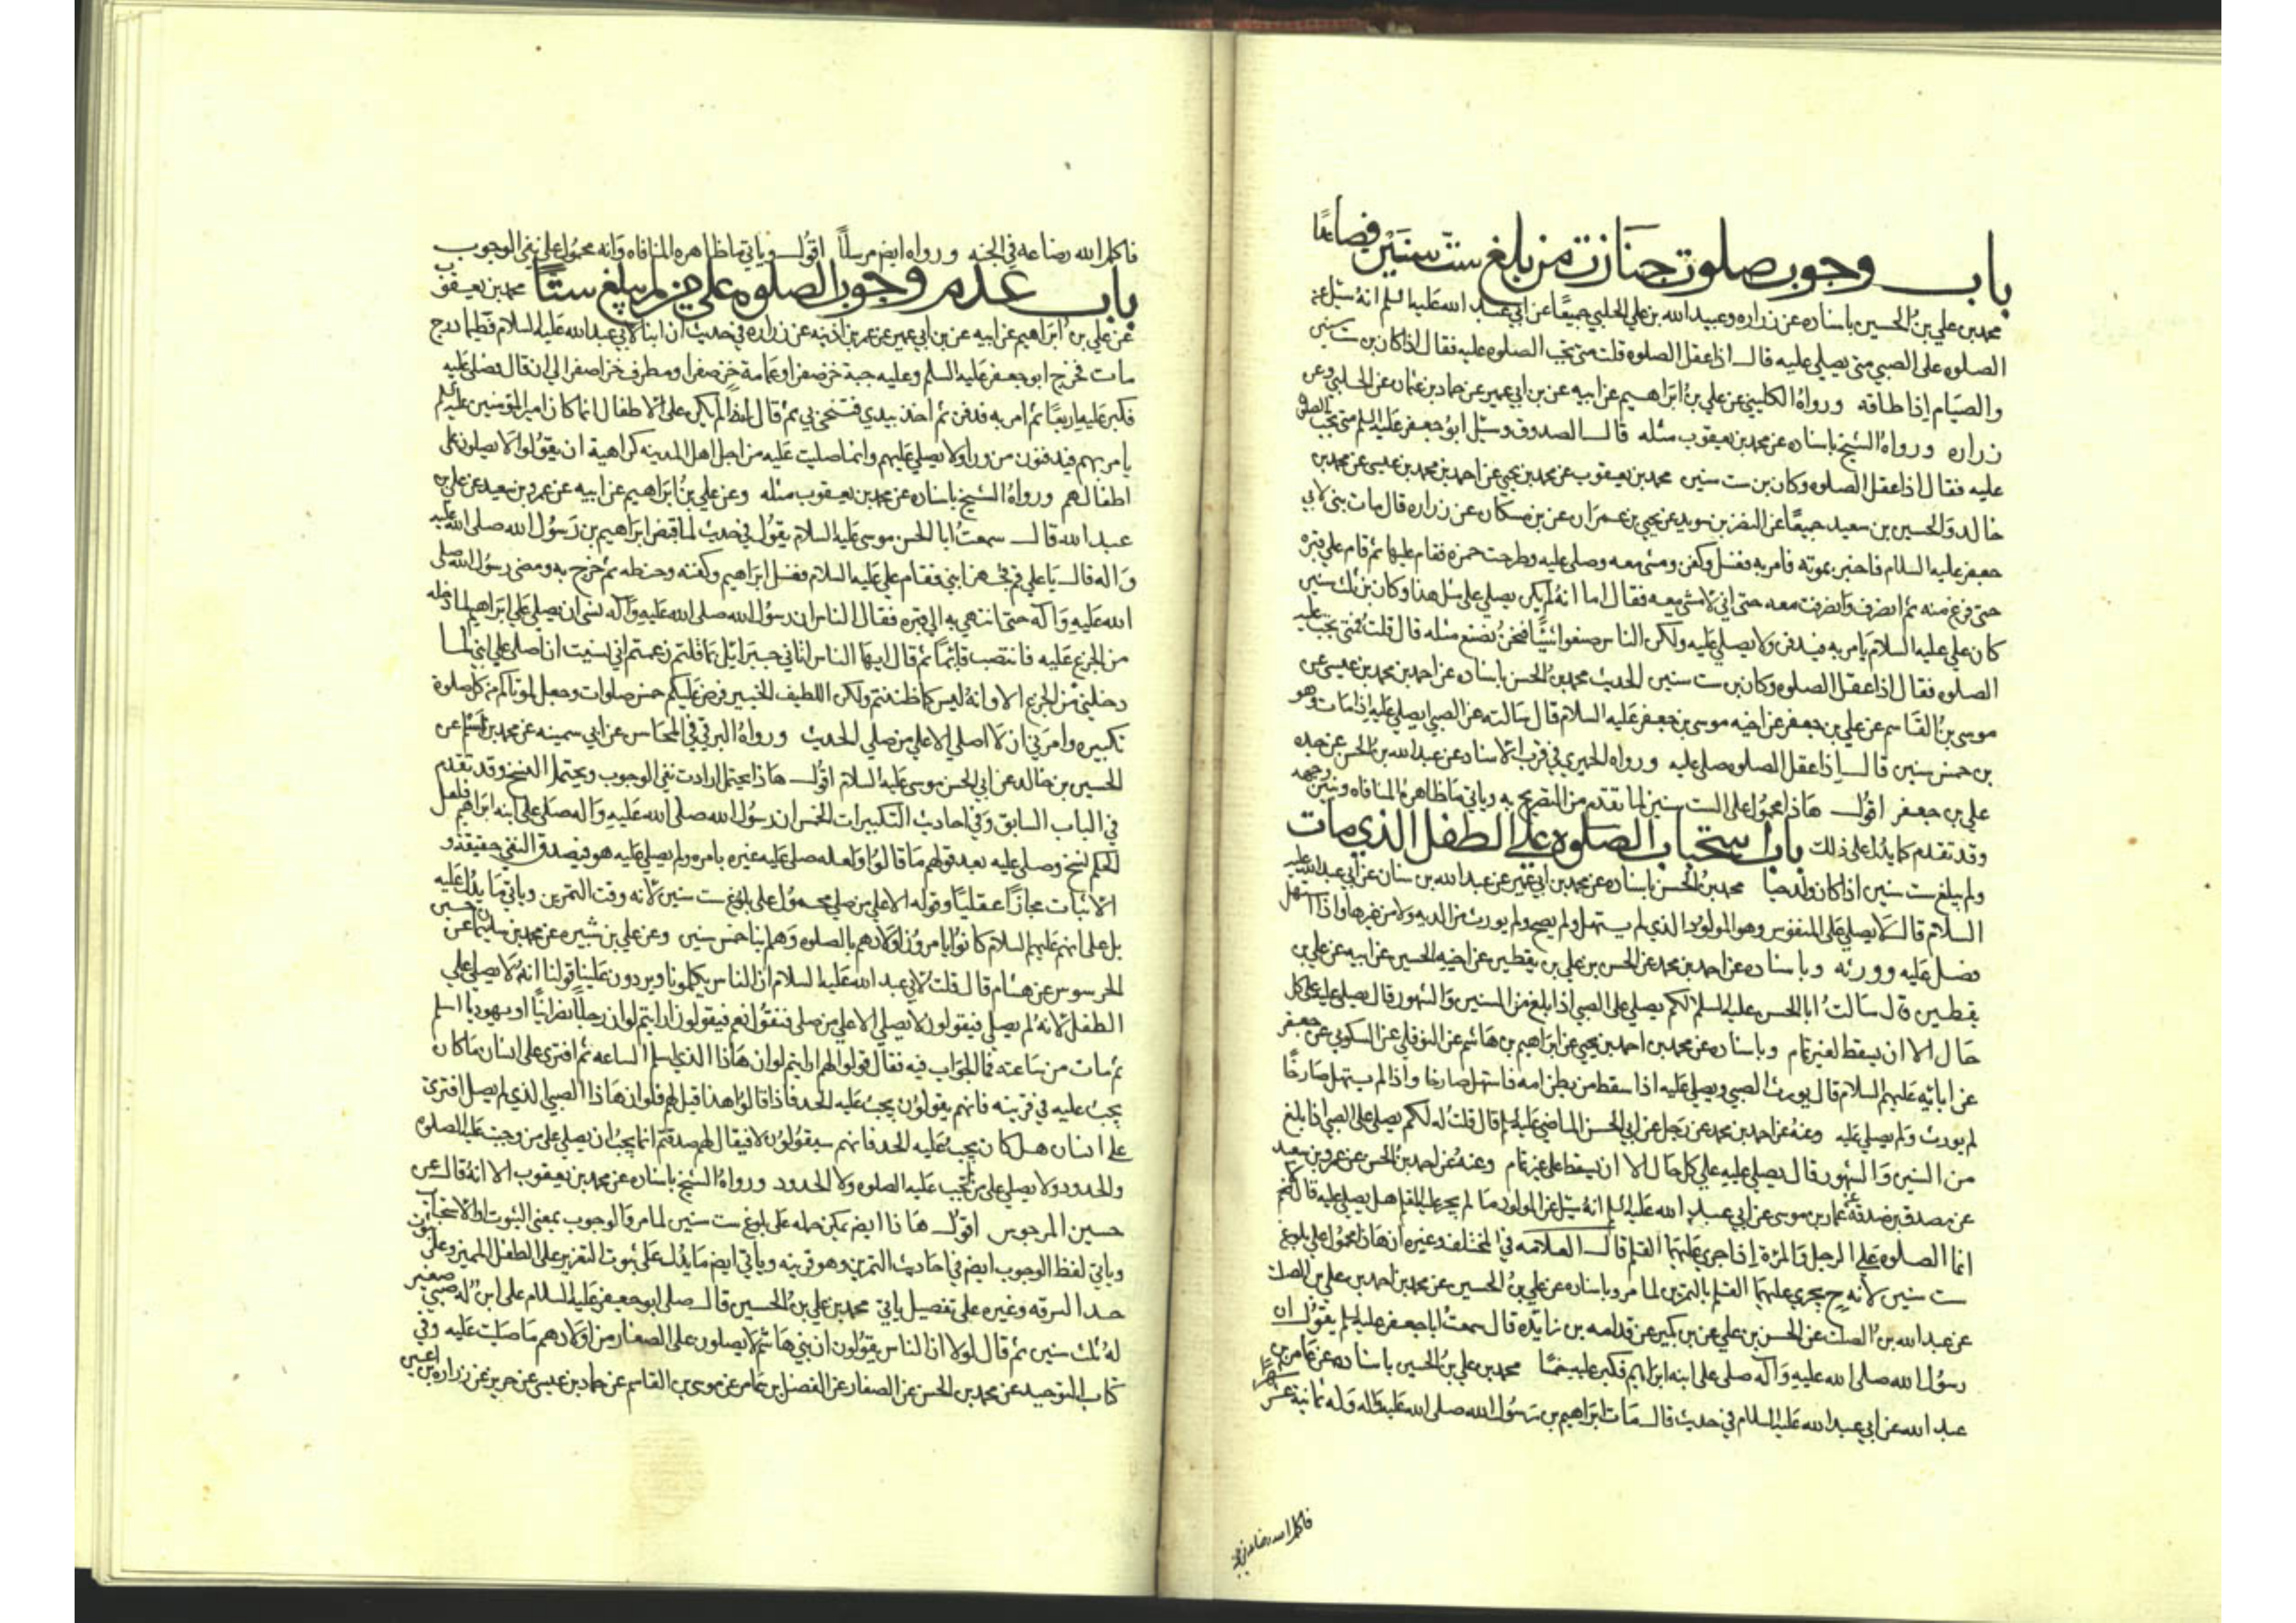 باب وجوب صلوت جنازت من بلغ ست سنين فصاعدا
محمد بن علي بن الحسين باسناده عن زراره وعبيد الله بن علي الحلبي جميعا عن ابي عبد الله عليه السلم انه سئل عن
الصلوه على الصبي متى يصلي عليه قال اذا عقل الصلوه قلت متى تجب الصلوه عليه فقال اذا كان بن ست سنين
والصيام إذا طاقه ورواه الكليني عن علي بن ابراهيم عن ابيه عن بن ابي عمير عن حماد بن عثمان عن الحلبي وعن
زراره ورواه الشيخ باسناده عن محمد بن يعقوب مثله قال الصدوق وسئل ابو جعفر عليه السلم متى تجب الصلوه
عليه فقال اذا عقل الصلوه وكان بن ست سنين محمد بن يعقوب عن محمد بن يحيى عن احمد بن محمد بن عيسى عن محمد بن
خالد والحسين بن سعيد جميعا عن النضر بن سويد عن يحيى بن عمران عن بن مسكان عن زراره قال مات بني لابي
جعفر عليه السلام فاخبر بموته فامر به فغسل وكفن ومشى معه وصلى عليه وطرحت خمره فقام عليها ثم قام على قبره
حتى فرغ منه ثم انصرف وانصرفت معه حتى اني لامشي معه فقال اما انه لم يكن يصلي على مثل هذا وكان بن ثلث سنين
كان علي عليه السلام يامر به فيدفن ولا يصلي عليه ولكن الناس صنعوا شيئا فنحن نصنع مثله قال قلت فمتى تجب عليه
الصلوه فقال اذا عقل الصلوه وكان بن ست سنين الحديث محمد بن الحسن باسناده عن احمد بن محمد بن عيسى عن
موسى بن القاسم عن علي بن جعفر عن اخيه موسى بن جعفر عليه السلام قال سالته عن الصبي ايصلى عليه اذا مات وهو
بن خمس سنين قال إذا عقل الصلوه صلي عليه ورواه الحميري في قرب الاسناد عن عبد الله بن الحسن عن جده
علي بن جعفر اقول هاذا محمول على الست سنين لما تقدم من التصريح به وياتي ما ظاهره المنافاه ونبين وجهه
وقد تقدم كما يدل على ذلك باب استحباب الصلوه على الطفل الذي مات
ولم يبلغ ست سنين اذا كان ولد حيا محمد بن الحسن باسناده عن محمد بن ابي عمير عن عبد الله بن سنان عن ابي عبد الله عليه
السلام قال لا يصلي على المنفوس وهو المولود الذي لم يستهل ولم يصح ولم يورث من الديه ولا من غيرها واذا استهل
فصل عليه وورثه وباسناده عن احمد بن محمد عن الحسن بن علي بن يقطين عن اخيه الحسين عن ابيه عن علي بن
يقطين قال سالت ابا الحسن عليه السلم لكم يصلي على الصبي اذا بلغ من السنين والشهور قال يصلي عليه على كل
حال الا ان يسقط لغير تمام وباسناده عن محمد بن احمد بن يحيى عن ابراهيم بن هاشم عن النوفلي عن السكوني عن جعفر
عن ابائه عليهم السلام قال يورث الصبي ويصلي عليه اذا سقط من بطن امه فاستهل صارخا واذا لم يستهل صارخا
لم يورث ولم يصلي عليه وعنه عن احمد بن محمد عن رجل عن ابي الحسن الماضي عليه السلم قال قلت له لكم يصلي على الصبي اذا بلغ
من السنين والشهور قال يصلي عليه على كل حال الا ان يسقط على غير تمام وعنه عن احمد بن الحسن عن عمرو بن سعيد
عن مصدق بن صدقه عن عمار بن موسى عن ابي عبد الله عليه السلم انه سئل عن المولود ما لم يجر عليه القلم هل يصلي عليه قال لا
انما الصلوه على الرجل والمرئة إذا جرى عليهما القلم قال العلامه في المختلف وغيره ان هاذا محمول على بلوغ
ست سنين لأنه ح يجري عليهما القلم بالتمرين لما مر وباسناده عن علي بن الحسين عن محمد بن احمد بن علي بن الصلت
عن عبد الله بن الصلت عن الحسن بن علي عن بن بكير عن قدامه بن زايده قال سمعت ابا جعفر عليه السلم يقول ان
رسول الله صلى الله عليه وآله صلى على ابنه ابراهيم فكبر عليه خمسا محمد بن علي بن الحسين باسناده عن عامر بن
عبد الله عن ابي عبد الله عليه السلام في حديث قال مات ابراهيم بن رسول الله صلى الله عليه واله وله ثمانية عشر شهرا
فاكمل الله رضاعه في الجنه
فاكمل الله رضاعه في الجنه ورواه ايضا مرسلا اقول وياتي ما ظاهره المنافاه وانه محمول على نفي الوجوب
باب عدم وجوب الصلوه على من لم يبلغ ستا محمد بن يعقوب
عن علي بن ابراهيم عن ابيه عن بن ابي عمير عن عمر بن اذينه عن زراره في حديث ان ابنا لابي عبد الله عليه السلام فطيما درج
مات فخرج ابو جعفر عليه السلم وعليه جبة خز صفرا وعمامة خز صفرا ومطرف خز اصفر الى ان قال فصلى عليه
فكبر عليه اربعا ثم امر به فدفن ثم اخذ بيدي فتنحى بي ثم قال انه لم يكن على الاطفال انما كان امير المؤمنين عليه السلم
يامر بهم فيدفنون من ورا ولا يصلي عليهم وانما صليت عليه من اجل اهل المدينه كراهية ان يقولوا لا يصلون على
اطفالهم ورواه الشيخ باسناده عن محمد بن يعقوب مثله وعن علي بن ابراهيم عن ابيه عن عمرو بن سعيد عن علي بن
عبد الله قال سمعت ابا الحسن موسى عليه السلام يقول في حديث لما قبض ابراهيم بن رسول الله صلى الله عليه
واله قال يا علي قم فجهز ابني فقام علي عليه السلام فغسل ابراهيم وكفنه وحنطه ثم خرج به ومضى رسول الله صلى
الله عليه وآله حتى انتهى به الى قبره فقال الناس ان رسول الله صلى الله عليه وآله نسي ان يصلي على ابراهيم لما دخله
من الجزع عليه فانتصب قائما ثم قال ايها الناس اتاني جبرائيل بما قلتم زعمتم اني نسيت ان اصلي على ابني لما
دخلني من الجزع الا وانه ليس كما ظننتم ولكن اللطيف الخبير فرض عليكم خمس صلوات وجعل لموتاكم من كل صلوة
تكبيره وامرني ان لا اصلي الا على من صلى الحديث ورواه البرقي في المحاسن عن ابي سمينه عن محمد بن اسلم عن
الحسين بن خالد عن ابي الحسن موسى عليه السلام اقول هاذا يحتمل ارادت نفي الوجوب ويحتمل النسخ وقد تقدم
في الباب السابق وفي احاديث التكبيرات الخمس ان رسول الله صلى الله عليه واله صلى على ابنه ابراهيم فلعل
الحكم نسخ وصلى عليه بعد قولهم ما قالوا ولعله صلى عليه غيره بامره ولم يصلي عليه هو فيصدق النفي حقيقة و
الاثبات مجازا عقليا وقوله الا على من صلى محمول على بلوغ ست سنين لأنه وقت التمرين وياتي ما يدل عليه
بل على انهم عليهم السلام كانوا يامرون اولادهم بالصلوه وهم ابنا خمس سنين وعن علي بن شيره عن محمد بن سليمان عن حسين
الحرسوس عن هشام قال قلت لابي عبد الله عليه السلام ان الناس يكلمونا ويردون علينا قولنا انه لا يصلي على
الطفل لانه لم يصلي فيقولون لا يصلي الا على من صلى فنقول نعم فيقولون ارايتم لو ان رجلا نصرانيا او يهوديا اسلم
ثم مات من ساعته فما الجواب فيه فقال قولوا لهم ارايتم لو ان هاذا الذي اسلم الساعه ثم افترى على انسان ما كان
يجب عليه في فريته فانهم يقولون يجب عليه الحد فاذا قالوا هذا قيل لهم فلو ان هاذا الصبي الذي لم يصل افترى
على انسان هل كان يجب عليه الحد فانهم سيقولون لا فيقال لهم صدقتم انما يجب ان يصلي على من وجبت عليه الصلوه
والحدود ولا يصلي على من لم تجب عليه الصلوه ولا الحدود ورواه الشيخ باسناده عن محمد بن يعقوب الا انه قال عن
حسين المرجوس اقول هاذا ايضا يمكن حمله على بلوغ ست سنين لما مر والوجوب بمعنى الثبوت او الاستحباب
وياتي لفظ الوجوب ايضا في احاديث التمرين وهو قرينه وياتي ايضا ما يدل على ثبوت التعزير على الطفل المميز وعلى ثبوت
حد السرقه وغيره على تفصيل ياتي محمد بن علي بن الحسين قال صلى ابو جعفر عليه السلام على ابن له صبي صغير
له ثلث سنين ثم قال لولا ان الناس يقولون ان بني هاشم لا يصلون على الصغار من اولادهم ما صليت عليه وفي
كتاب التوحيد عن محمد بن الحسن عن الصفار عن الفضل بن عامر عن موسى بن القاسم عن حماد بن عيسى عن حريز عن زراره بن اعين